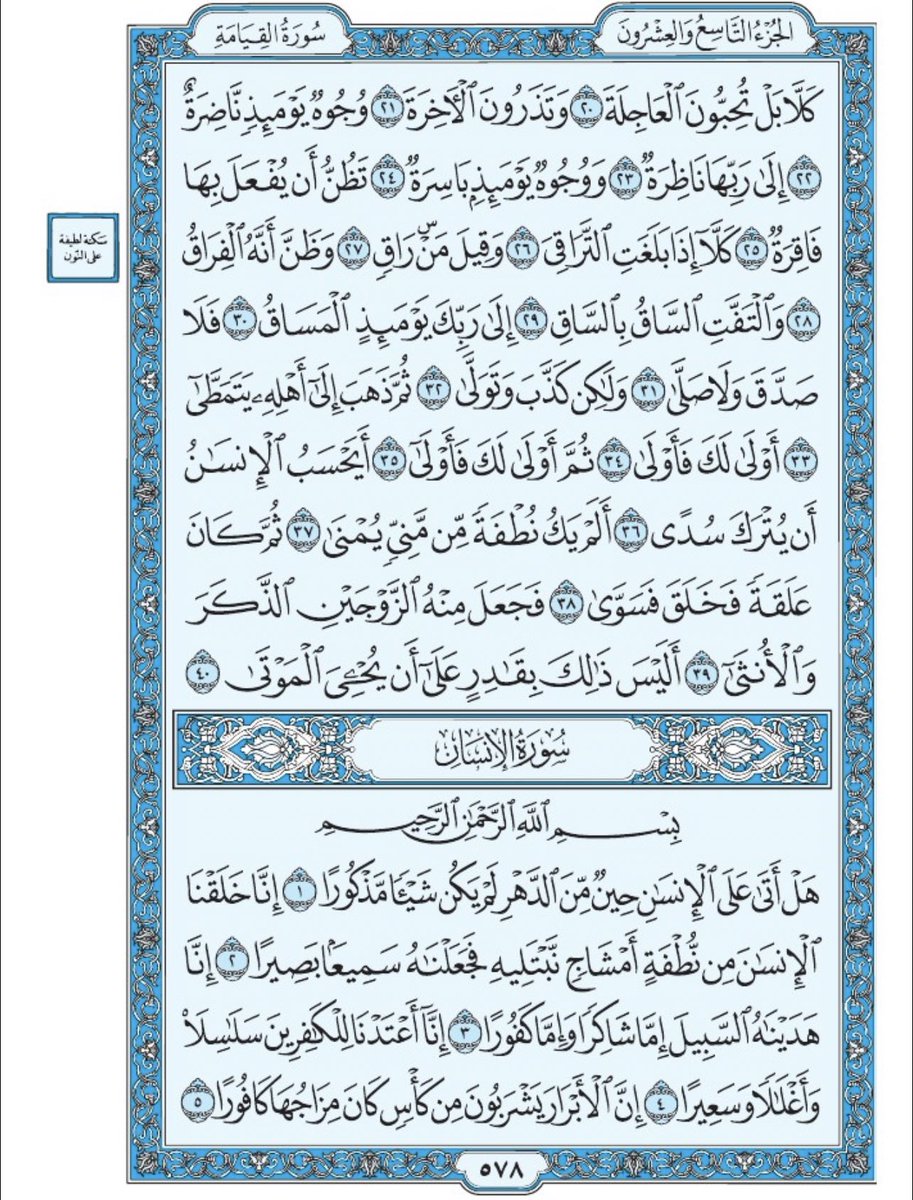 سُورَةُ القِيَامَةِ
الجُزْءُ التَّاسِعُ وَالعِشْرُونَ
كَلَّا بَلْ تُحِبُّونَ ٱلْعَاجِلَةَ ٢٠ وَتَذَرُونَ ٱلْأٓخِرَةَ ٢١ وُجُوهٞ يَوْمَئِذٖ نَّاضِرَةٌ
٢٢ إِلَىٰ رَبِّهَا نَاظِرَةٞ ٢٣ وَوُجُوهٞ يَوْمَئِذِۭ بَاسِرَةٞ ٢٤ تَظُنُّ أَن يُفْعَلَ بِهَا
فَاقِرَةٞ ٢٥ كَلَّآ إِذَا بَلَغَتِ ٱلتَّرَاقِيَ ٢٦ وَقِيلَ مَنْۜ رَاقٖ ٢٧ وَظَنَّ أَنَّهُ ٱلْفِرَاقُ
سكتة لطيفة
على النون
٢٨ وَٱلْتَفَّتِ ٱلسَّاقُ بِٱلسَّاقِ ٢٩ إِلَىٰ رَبِّكَ يَوْمَئِذٍ ٱلْمَسَاقُ ٣٠ فَلَا
صَدَّقَ وَلَا صَلَّىٰ ٣١ وَلَٰكِن كَذَّبَ وَتَوَلَّىٰ ٣٢ ثُمَّ ذَهَبَ إِلَىٰٓ أَهْلِهِۦ يَتَمَطَّىٰٓ
٣٣ أَوْلَىٰ لَكَ فَأَوْلَىٰ ٣٤ ثُمَّ أَوْلَىٰ لَكَ فَأَوْلَىٰٓ ٣٥ أَيَحْسَبُ ٱلْإِنسَٰنُ
أَن يُتْرَكَ سُدًى ٣٦ أَلَمْ يَكُ نُطْفَةٗ مِّن مَّنِيّٖ يُمْنَىٰ ٣٧ ثُمَّ كَانَ
عَلَقَةٗ فَخَلَقَ فَسَوَّىٰ ٣٨ فَجَعَلَ مِنْهُ ٱلزَّوْجَيْنِ ٱلذَّكَرَ
وَٱلْأُنثَىٰٓ ٣٩ أَلَيْسَ ذَٰلِكَ بِقَٰدِرٍ عَلَىٰٓ أَن يُحْـِۧيَ ٱلْمَوْتَىٰ ٤٠
سُورَةُ الإِنسَان
بِسْمِ ٱللَّهِ ٱلرَّحْمَٰنِ ٱلرَّحِيمِ
هَلْ أَتَىٰ عَلَى ٱلْإِنسَٰنِ حِينٞ مِّنَ ٱلدَّهْرِ لَمْ يَكُن شَيْـٔٗا مَّذْكُورًا ١ إِنَّا خَلَقْنَا
ٱلْإِنسَٰنَ مِن نُّطْفَةٍ أَمْشَاجٖ نَّبْتَلِيهِ فَجَعَلْنَٰهُ سَمِيعَۢا بَصِيرًا ٢ إِنَّا
هَدَيْنَٰهُ ٱلسَّبِيلَ إِمَّا شَاكِرٗا وَإِمَّا كَفُورًا ٣ إِنَّآ أَعْتَدْنَا لِلْكَٰفِرِينَ سَلَٰسِلَاْ
وَأَغْلَٰلٗا وَسَعِيرًا ٤ إِنَّ ٱلْأَبْرَارَ يَشْرَبُونَ مِن كَأْسٖ كَانَ مِزَاجُهَا كَافُورًا ٥
٥٧٨